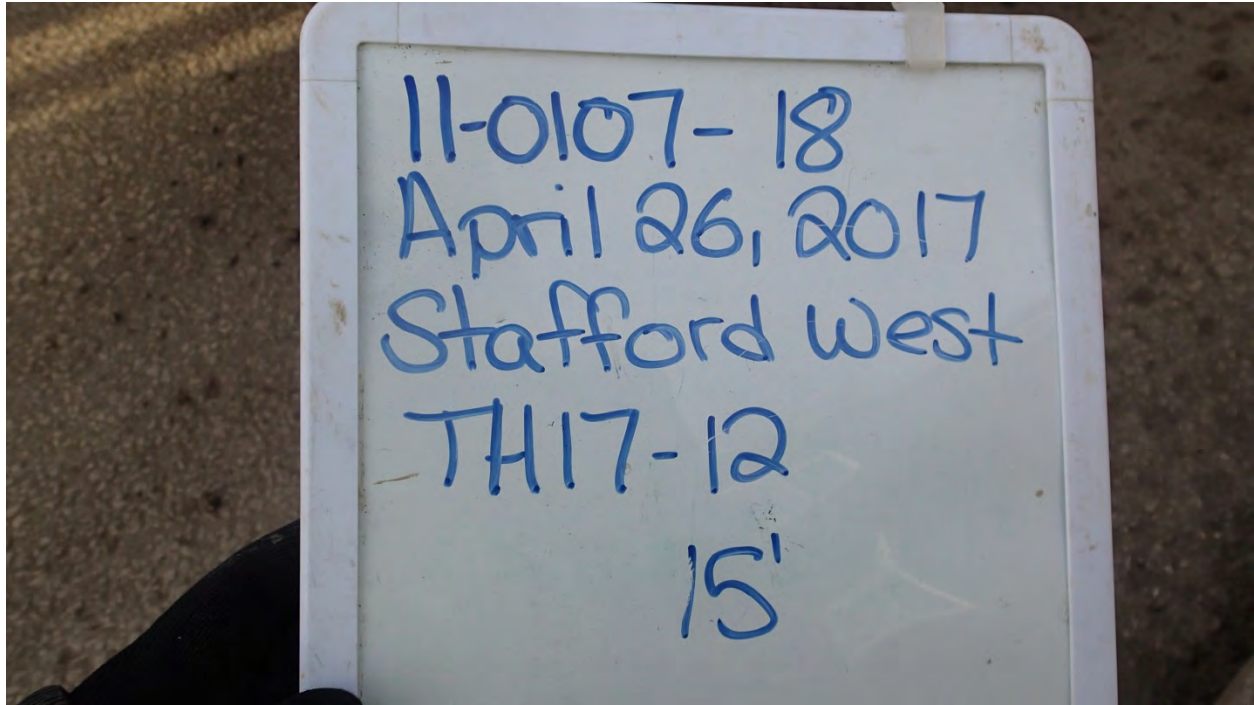 11-0107-18
April 26, 2017
Stafford West
TH17-12
15'